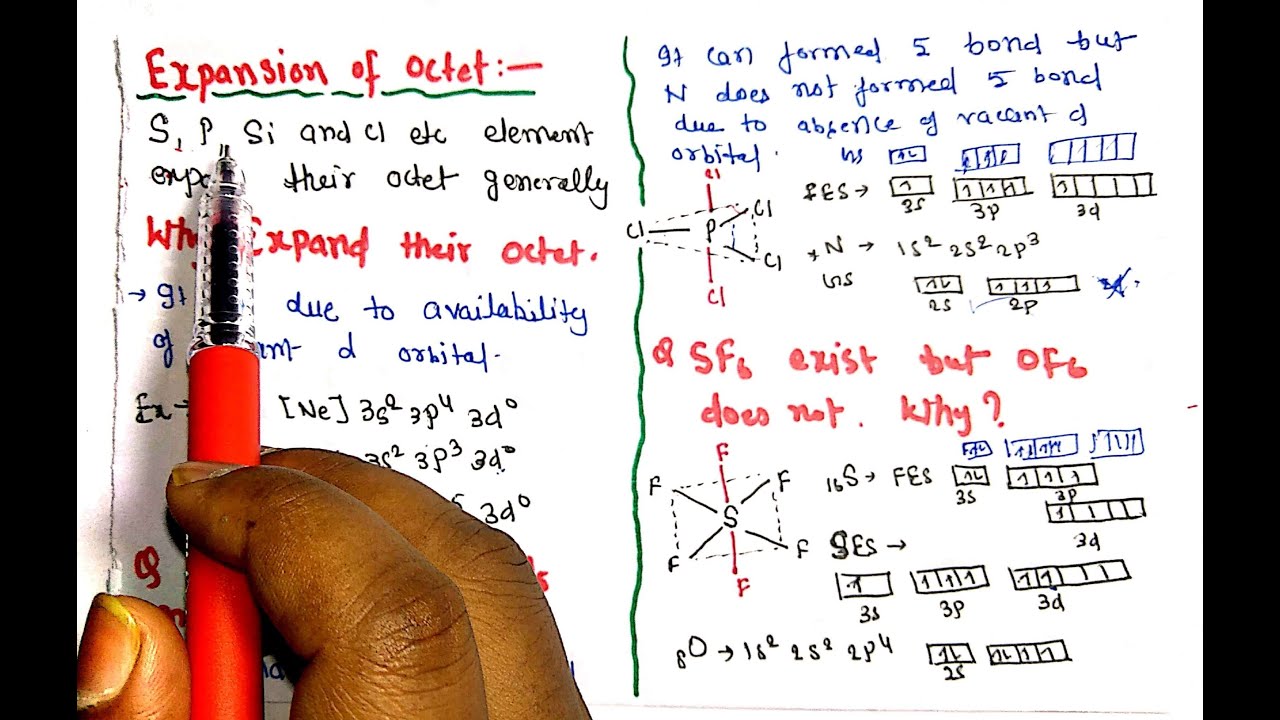 Expansion of octet:-
S, P, Si and Cl etc element
their octet generally
Expand their octet.
→ due to availability
of d orbital.
Ex→ [Ne] 3s² 3p⁴ 3d⁰
3s² 3p³ 3d⁰
3d⁰
Q
It can formed 5 bond but
N does not formed 5 bond
due to absence of vacant d
orbital. GS 1L 1 1 1
FES→ 1 1 1 1 1
3s 3p 3d
Cl
Cl P Cl
Cl
Cl
* N → 1s² 2s² 2p³
GS 1L 1 1 1
2s 2p
Q SF6 exist but OF6
does not. Why?
F
F F
S
F F
F
16S → FES 1L 1 1 1
3s 3p
1
3d
SES →
1 1 1 1 1 1
3s 3p 3d
8O → 1s² 2s² 2p⁴ 1L 1L 1 1
2s